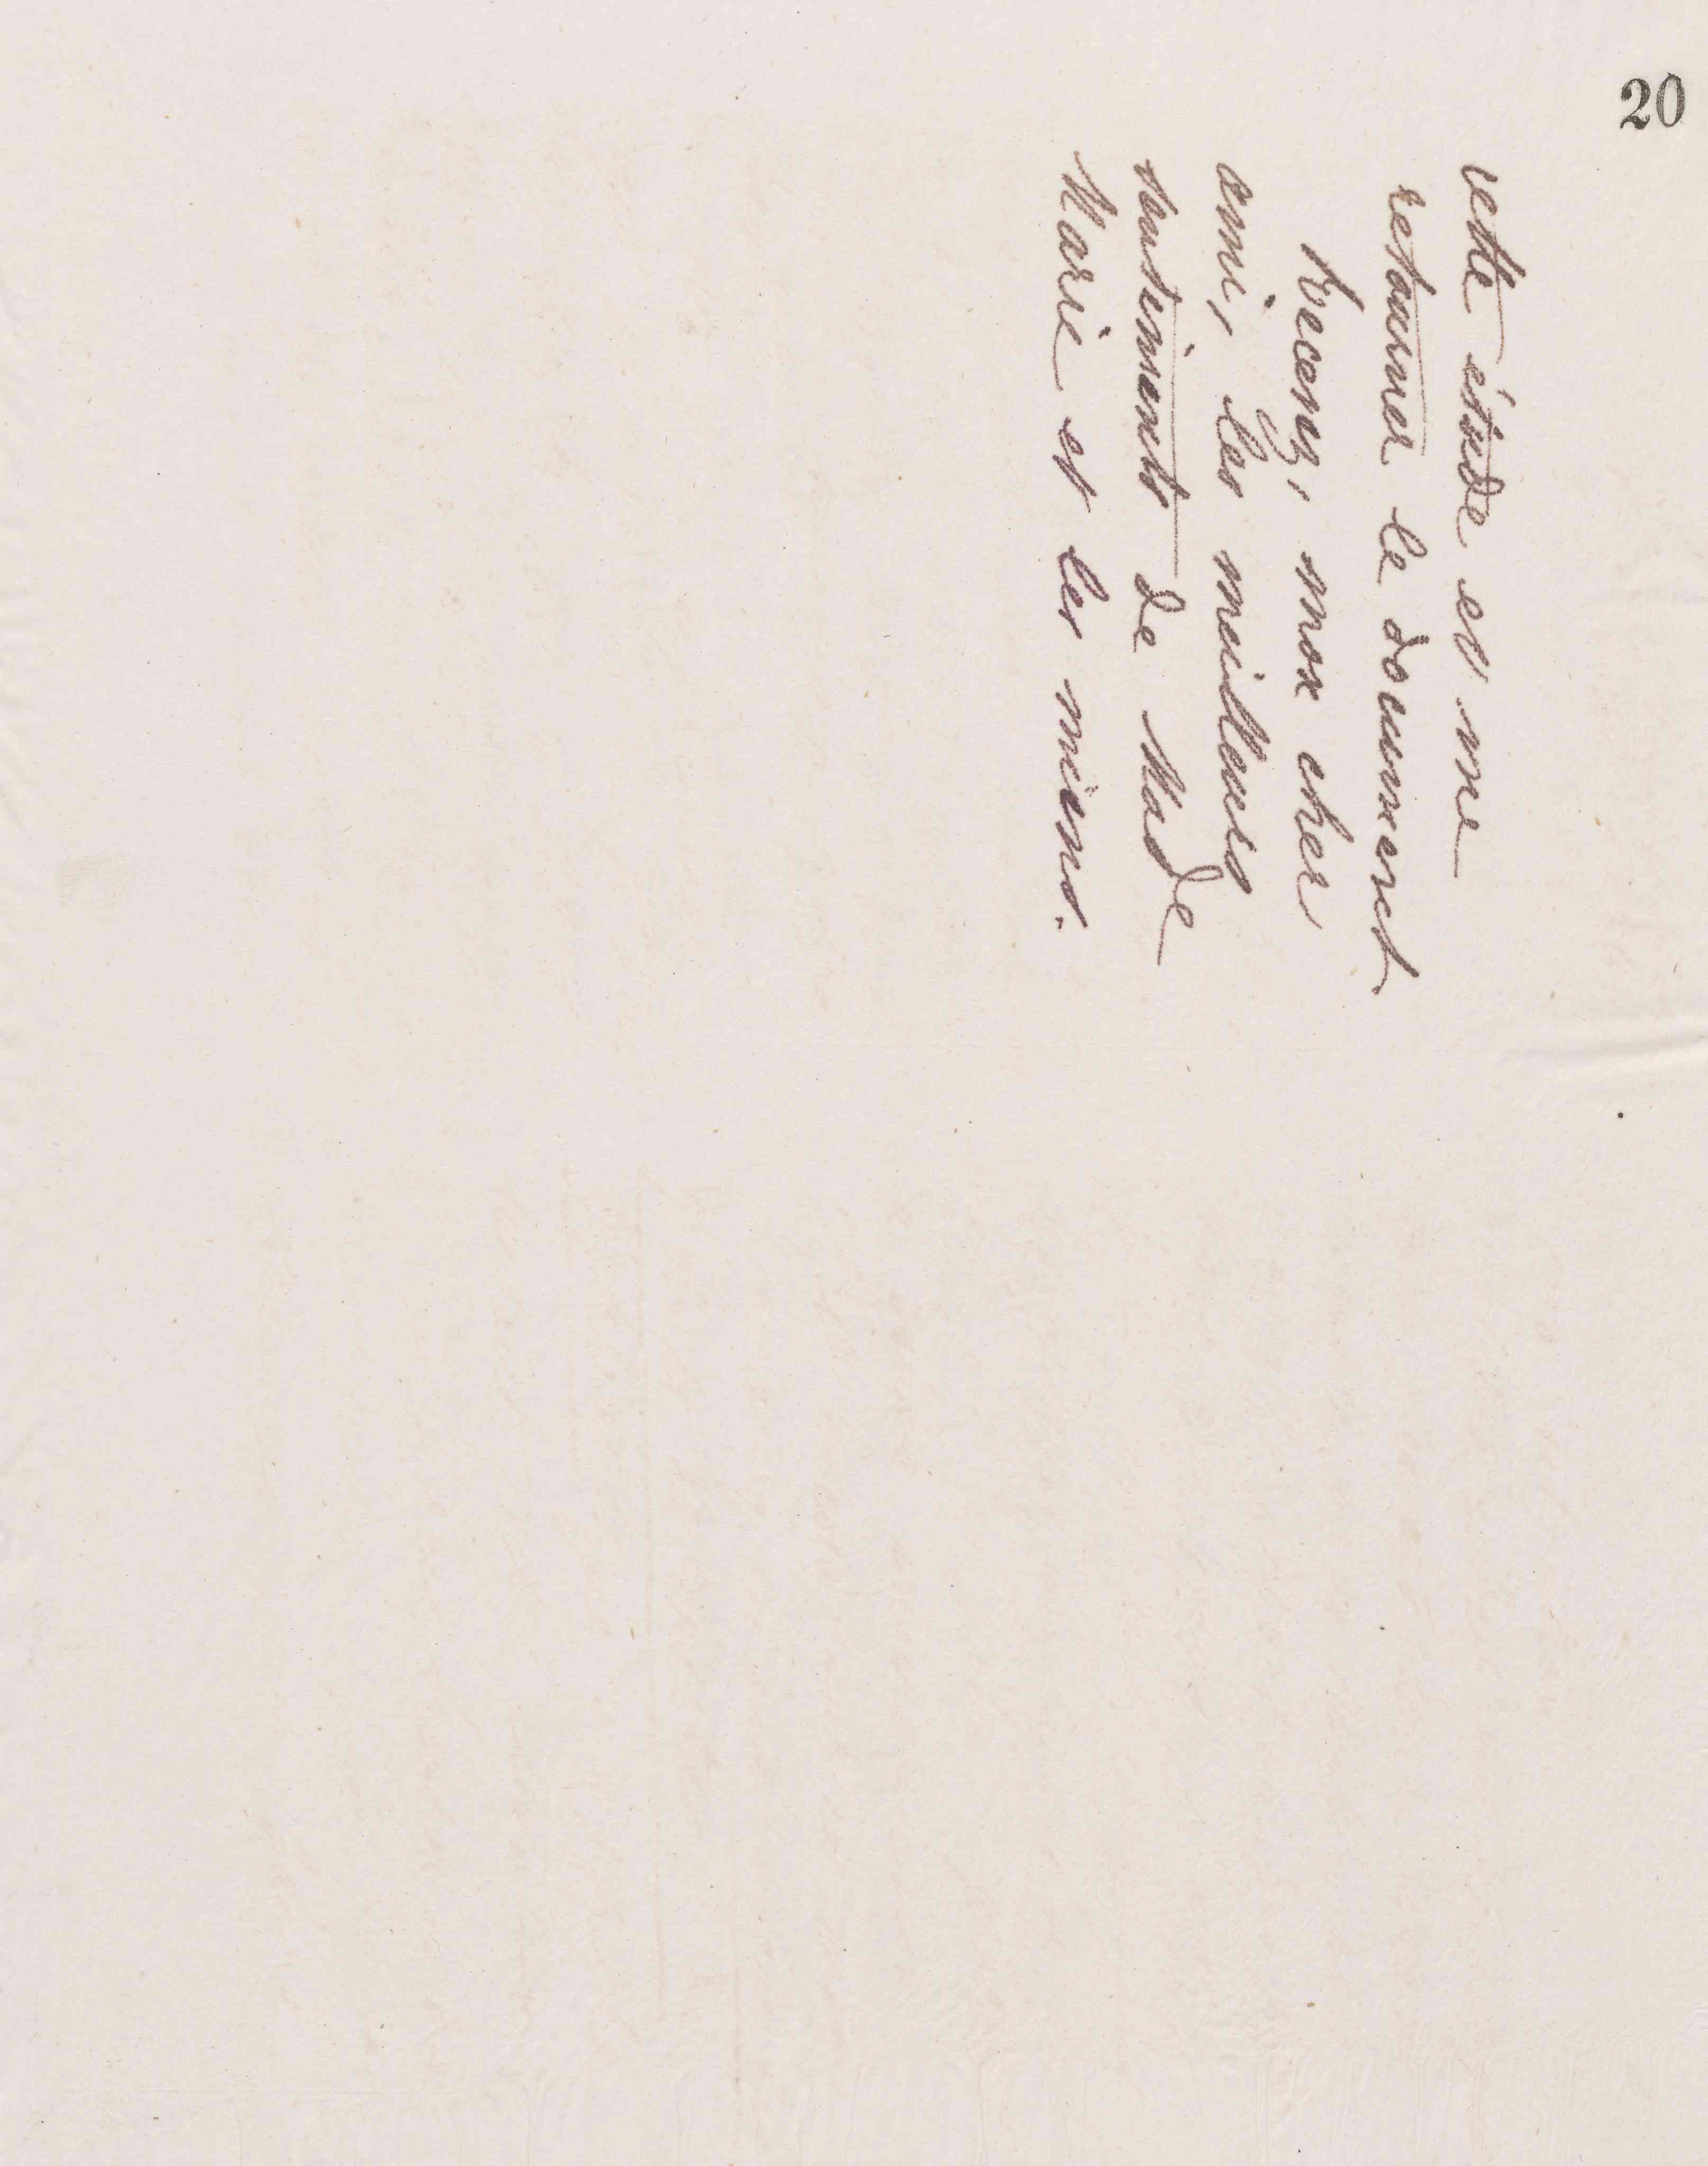 20
cette étude et me
retourner le document.
Recevez, mon cher
ami, les meilleurs
sentiments de Made
Marie et les miens.